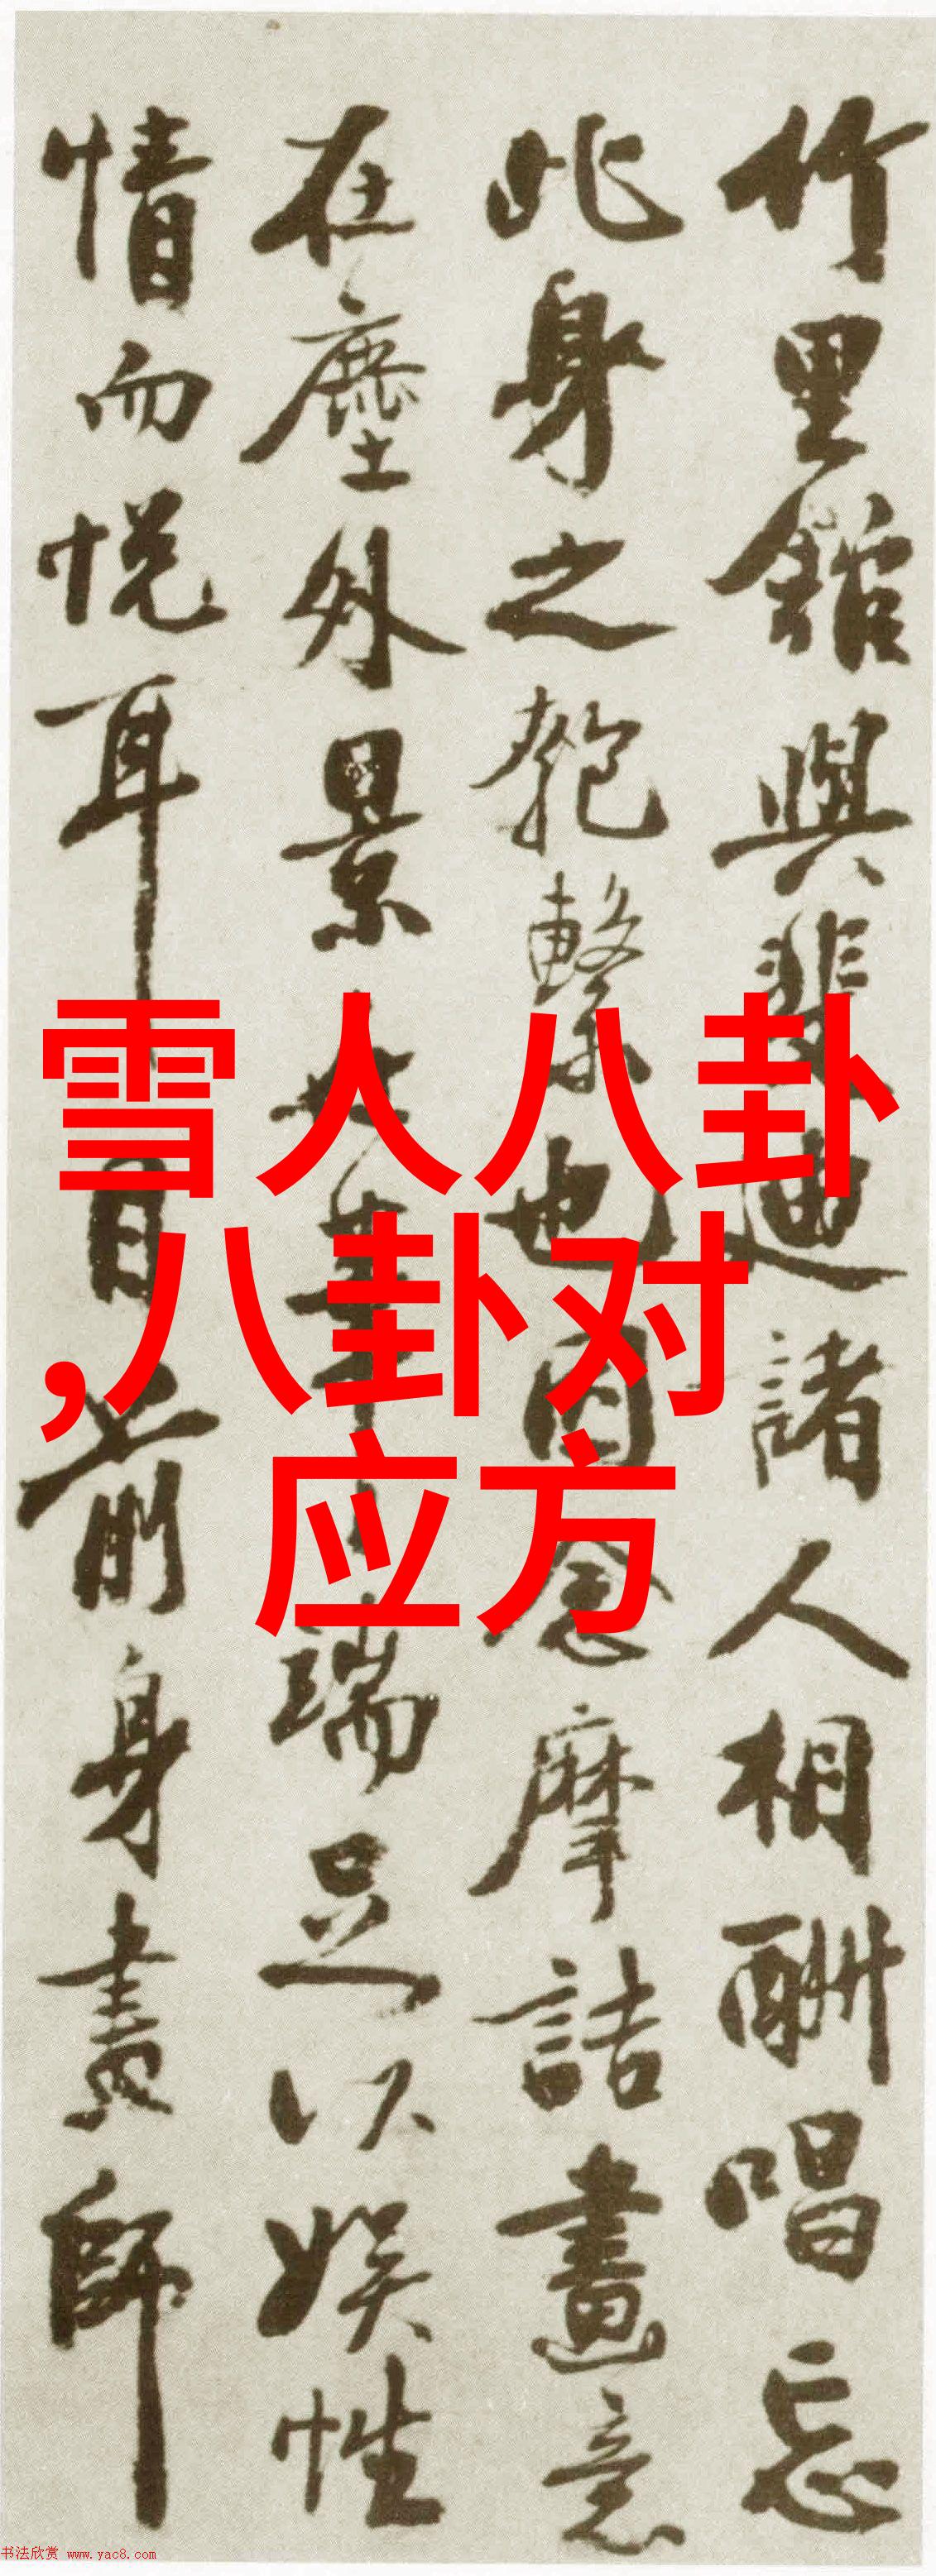 竹里館與裴迪諸人相酬唱忘
此身之匏繫也因念摩詰畫意
在塵外景
端足以娱性
情而悦耳目前身畫師
雪人八卦
,八卦对
应方
书法欣赏 www.yac8.com